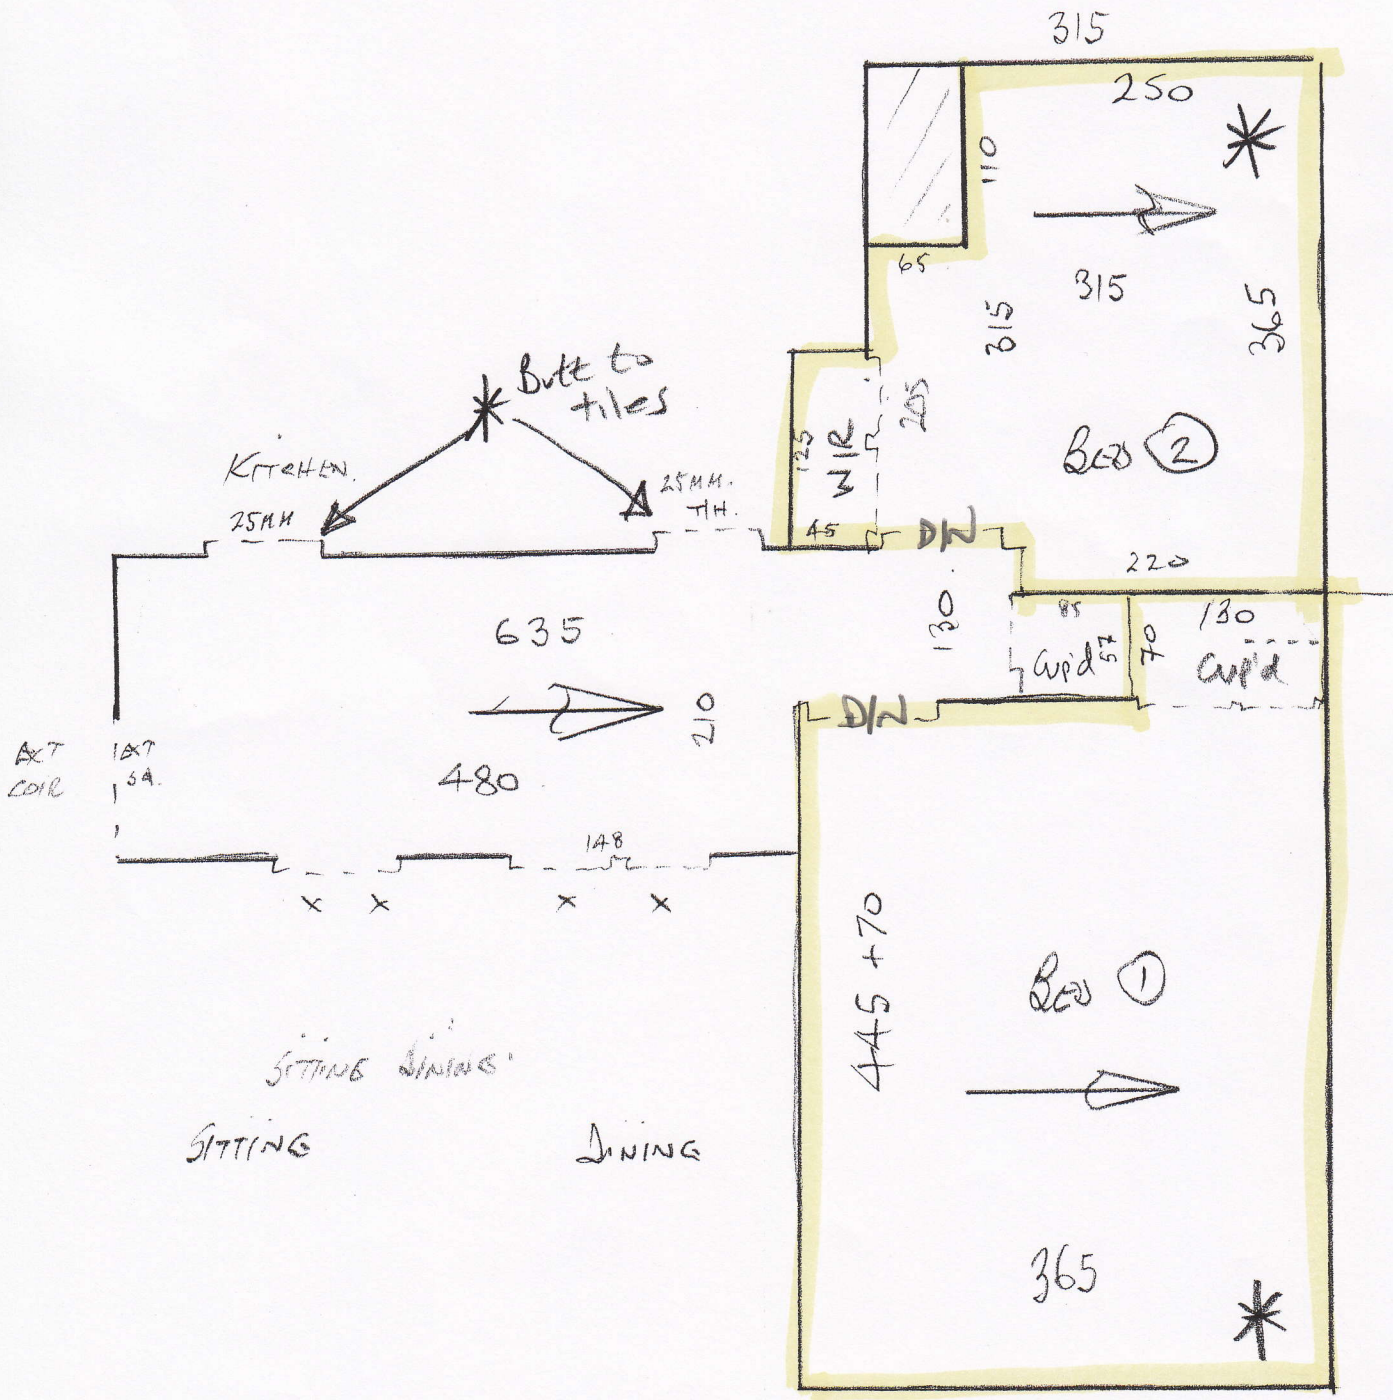 315
250
110
65
315
315
365
Butt to
tiles
KITCHEN.
25MM
25MM.
T/H.
125
W/R
205
45
D/N
BED 2
220
635
130
85
Cup'd
57
70
130
Cup'd
D/N
210
480
EXT
COIR
EXT
SA.
148
x x x x
445 +70
BED 1
SITTING DINING
SITTING
DINING
365